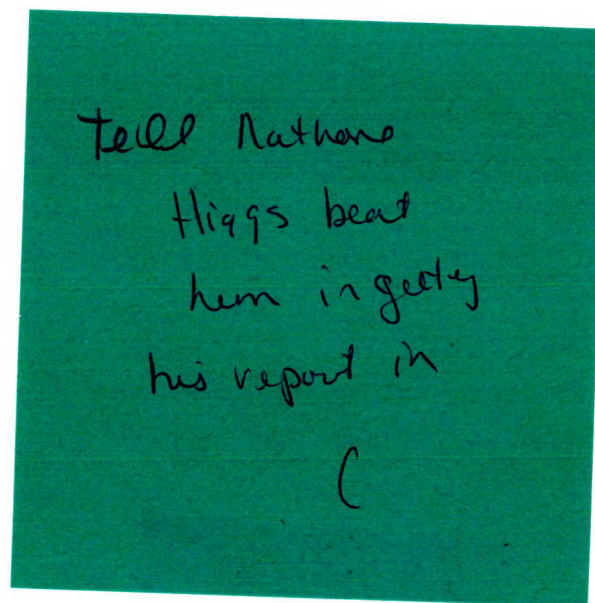 Tell Nathan
Higgs beat
him in getting
his report in
C